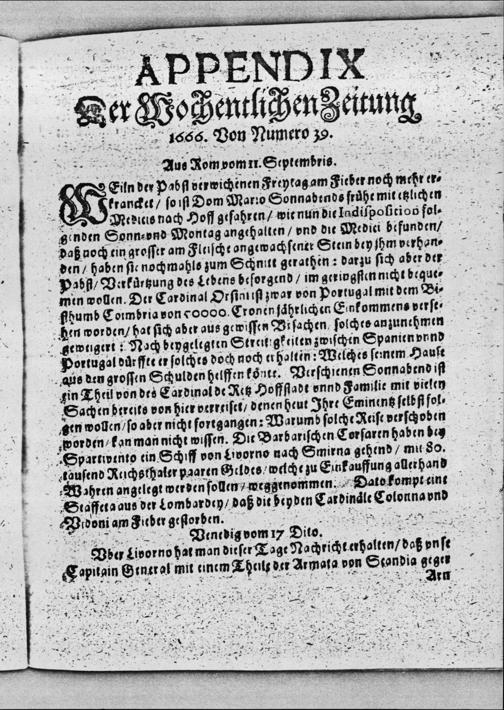 APPENDIX
Der Wochentlichen Zeitung
1666. Von Numero 39.
Aus Rom vom 11. Septembris.
WEiln der Pabst verwichenen Freytag am Fieber noch mehr er-
krancket / so ist Dom Mario Sonnabends frühe mit etzlichen
Medicis nach Hoff gefahren / wie nun die Indisposition fol-
genden Sonn- vnd Montag angehalten / vnd die Medici befunden /
daß noch ein grosser am Fleische angewachsener Stein bey jhm verhan-
den / haben sie nochmahls zum Schnitt gerathen : darzu sich aber der
Pabst / Verkürtzung des Lebens besorgend / im geringsten nicht beque-
men wollen. Der Cardinal Orsini ist zwar von Portugal mit dem Bi-
sthumb Coimbria von 50000. Cronen jährlichen Einkommens verse-
hen worden / hat sich aber aus gewissen Vrsachen, solches anzunehmen
geweigert : Nach beygelegten Streitigkeiten zwischen Spanien vnnd
Portugal dürffte er solches doch noch erhalten : Welches seinem Hause
aus den grossen Schulden helffen könte. Verschienen Sonnabend ist
ein Theil von des Cardinal de Retz Hoffstadt vnnd Familie mit vielen
Sachen bereits von hier verreiset / denen heut Ihre Eminentz selbst fol-
gen wollen / so aber nicht fortgangen : Warumb solche Reise verschoben
worden / kan man nicht wissen. Die Barbarischen Corsaren haben bey
Spartivento ein Schiff von Livorno nach Smirna gehend / mit 80.
tausend Reichsthaler paaren Geldes / welche zu Einkauffung allerhand
Wahren angelegt werden sollen / weggenommen. Dato kompt eine
Staffeta aus der Lombardey / daß die beyden Cardinäle Colonna vnd
Vidoni am Fieber gestorben.
Venedig vom 17 Dito.
Vber Livorno hat man dieser Tage Nachricht erhalten / daß vnse
Capitain General mit einem Theile der Armata von Scandia gegen
Arn